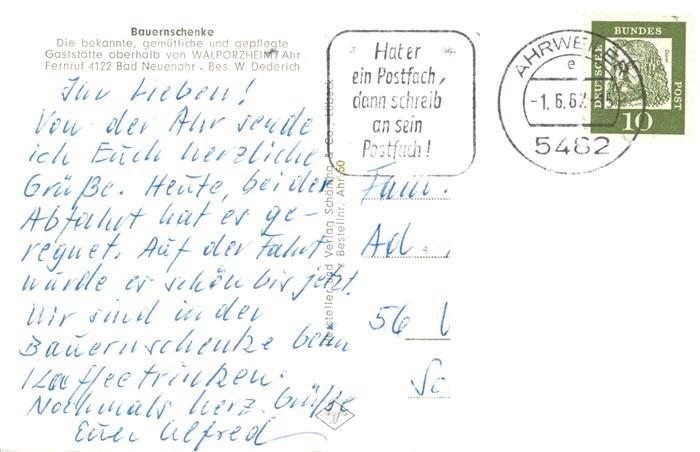 Bauernschenke
Die bekannte, gemütliche und gepflegte
Gaststätte oberhalb von WALPORZHEIM / Ahr
Fernruf 4122 Bad Neuenahr - Bes. W. Dederich
Ihr Lieben!
Von der Ahr sende
ich Euch herzliche
Grüße. Heute, bei der
Abfahrt hat es ge-
regnet. Auf der Fahrt
wurde es schön bis jetzt.
Wir sind in der
Bauernschenke beim
Kaffeetrinken.
Nochmals herz. Grüße
Euer Alfred
Hersteller und Verlag Schöning & Co., Lübeck
Bestellnr. Ahr 50
Hat er
ein Postfach,
dann schreib
an sein
Postfach!
AHRWEILER
e
-1.6.62
5482
DEUTSCHE
BUNDES
POST
Dürer
10
Fam.
Ad.
56